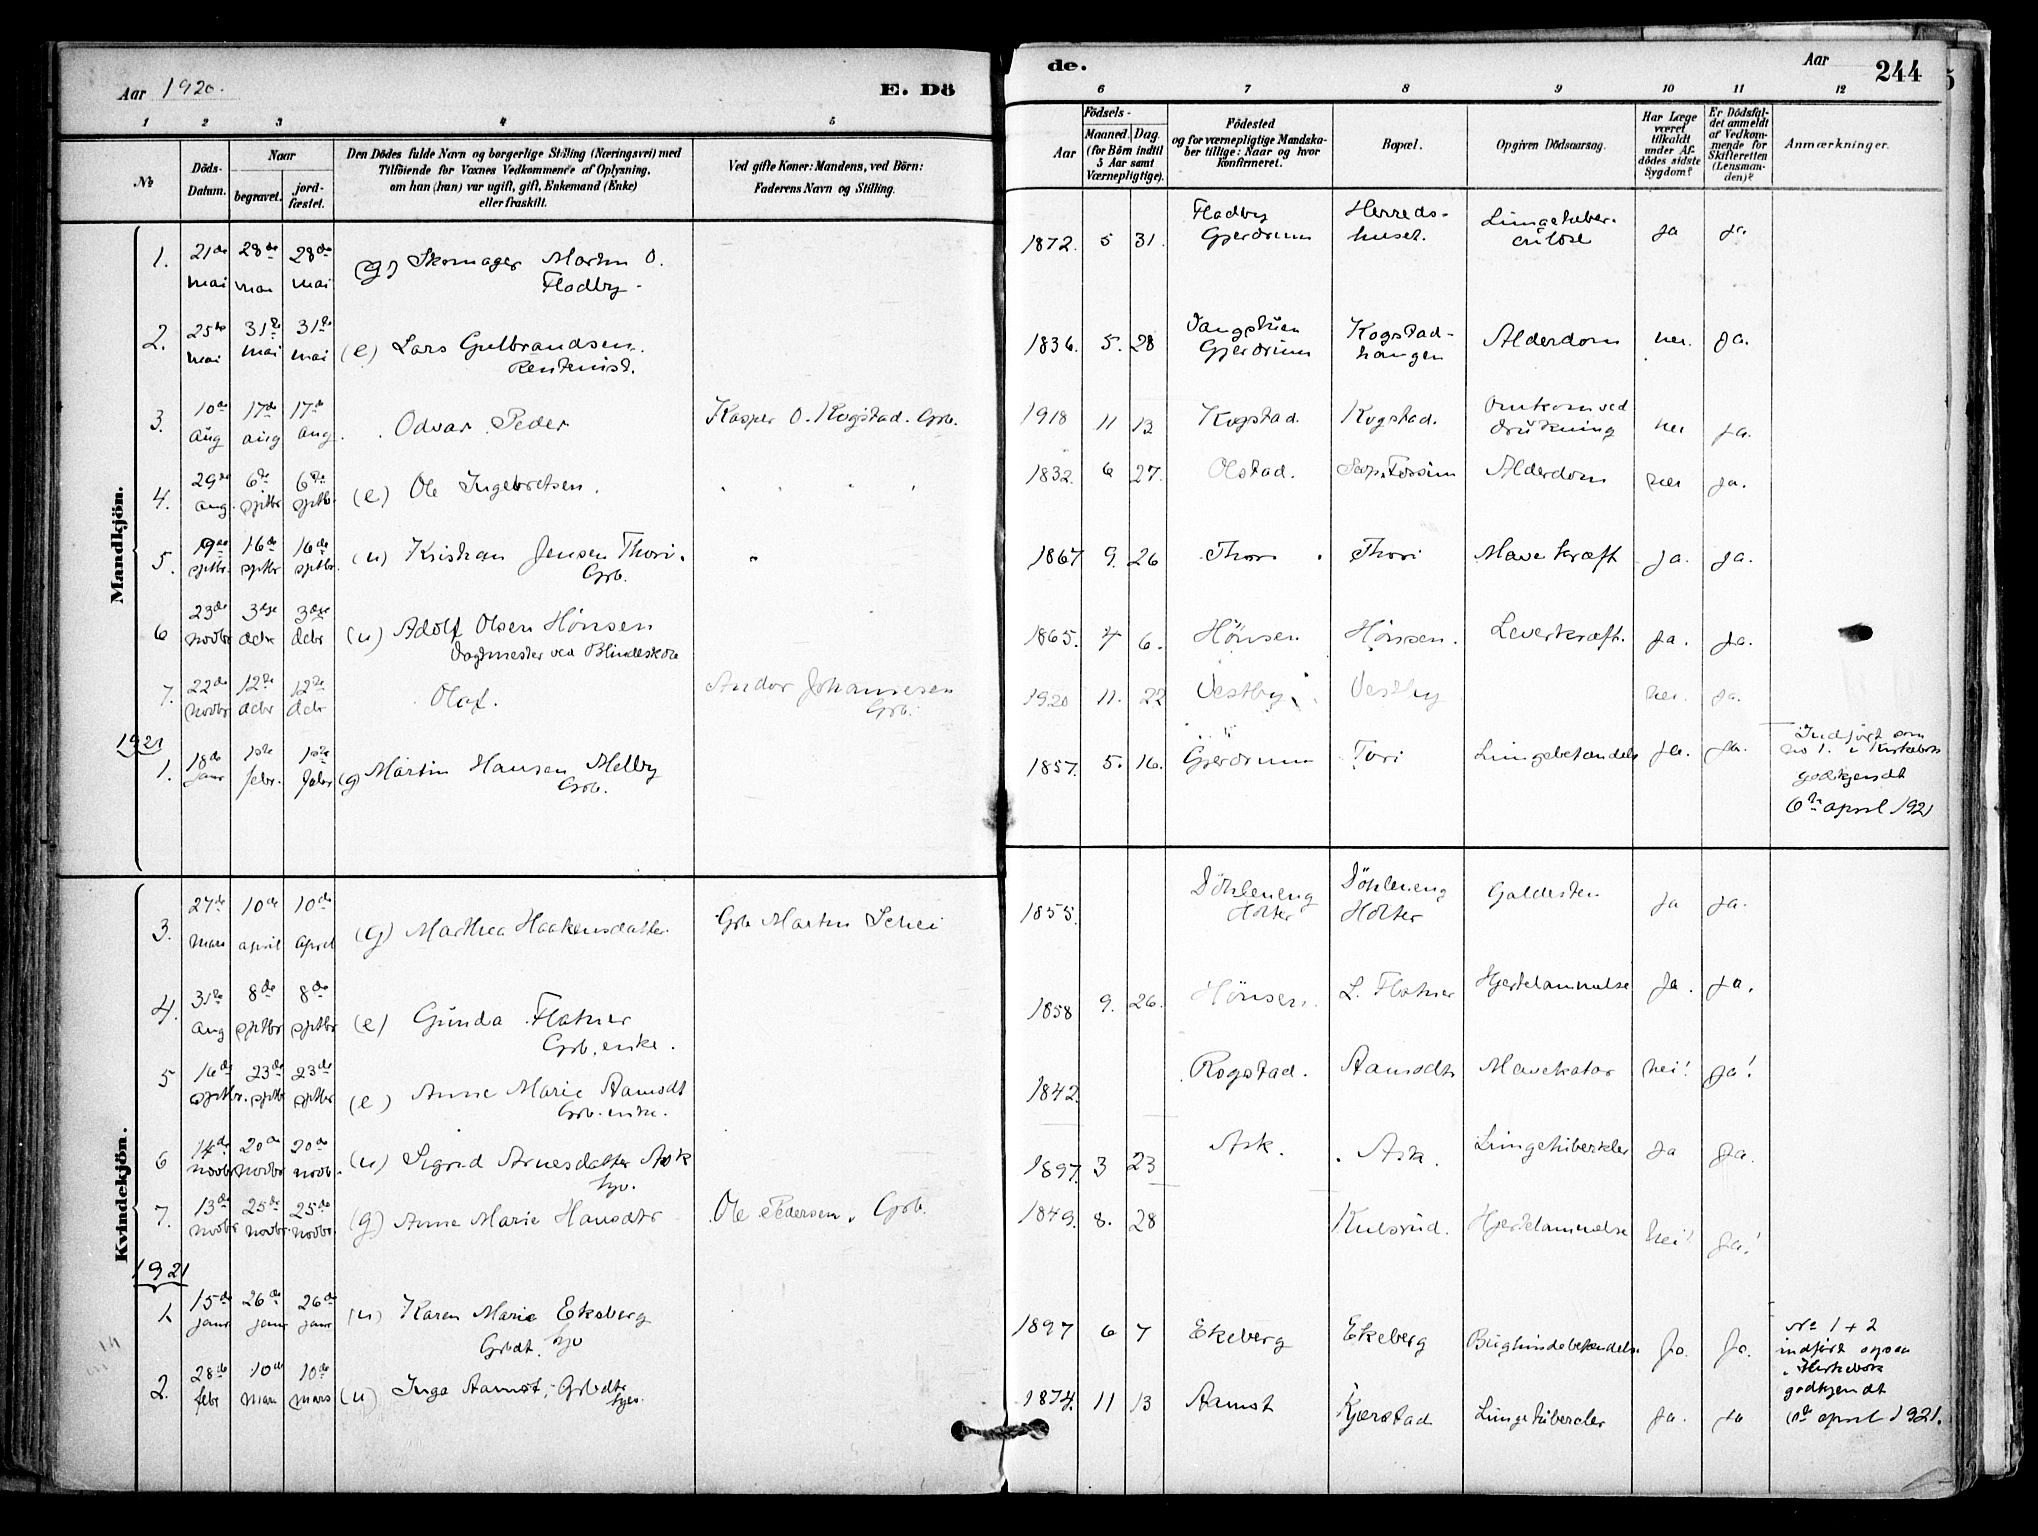 Aar 1920.
E. Dö
de.
Aar
244
1 2 3 4 5
6 7 8 9 10 11 12
No
Döds-Datum.
Naar
begravet.
jord-fæstet.
Den Dödes fulde Navn og borgerlige Stilling (Næringsvei) med
Tilföiende for Voxnes Vedkommende af Oplysning,
om han (hun) var ugift, gift, Enkemand (Enke)
eller fraskilt.
Ved gifte Koner: Mandens, ved Börn:
Faderens Navn og Stilling.
Födsels-
Aar
Maaned. Dag.
(for Börn indtil
5 Aar samt
Værnepligtige).
Födested
og for værnepligtige Mandska-
ber tillige: Naar og hvor
konfirmeret.
Bopæl.
Opgiven Dödsaarsag.
Har Læge
været
tilkaldt
under Af-
dödes sidste
Sygdom?
Er Dödsfal-
det anmeldt
af Vedkom-
mende for
Skifteretten
(Lensman-
den)?
Anmærkninger.
Mandkjön.
1. 21de mai 28de mai 28de mai (g) Skomager Martin O. Fladby 1872. 5 31. Fladby Gjerdrum Herreds-huset. Lungetuber-culose ja ja
2. 25de mai 31te mai 31te mai (e) Lars Gulbrandsen. Rentenist. 1836. 5. 28 Gjerdrum Kogstad-hangen Alderdom nei. ja.
3. 10de aug 17de aug 17de aug. Odvar Peder Kasper O. Kogstad. Grb. 1918 11 13 Kogstad. Kogstad. Omkom ved drukning nei ja.
4. 29de aug. 6te septbr 6te septbr. (e) Ole Ingebretsen. 1832. 6 27. Olstad. Alderdom nei ja.
5. 19de septbr. 16de septbr 16de septbr. (u) Kristian Jensen Thori. Grb. 1867 9. 26 Thori Thori Mavekræft ja. ja.
6 23de novbr 3dje decbr 3dje decbr (u) Adolf Olsen Hönsen Vagtmester ved Blindeskole 1865. 4 6. Hönsen Hönsen. Leverkræft. ja. ja.
7. 22de novbr 12te decbr 12te decbr Olaf. Andor Johannesen Grb. 1920 11. 22 Vestby Vestby nei. ja.
1921
1. 18de janr 1ste febr. 1ste febr (g) Martin Hansen Melby Grb. 1857. 5. 16. Gjerdrum Tori Lungebetændels ja. ja. Indfört som no 1. i Kirkebok godkjendt 6te april 1921
Kvindekjön.
3. 27de mars 10de april 10de april (g) Marthea Haakensdatter Grb Martin Schei 1855. Döhleneng Holter Döhleneng Holter Galdesten ja ja.
4. 31te aug 8de septbr 8de septbr (e) Gunda Flatner Grb. enke. 1858 9. 26. Hönsen. L. Flatner Hjertelammelse ja. ja.
5 16de septbr. 23de septbr 23de septbr (e) Anne Marie Aamodt Grb. enke. 1842. Rogstad. Aamodt Mavekatar nei! ja!
6 14de novbr 20de novbr 20de novb. (u) Sigrid Arnesdatter Ask syv. 1897. 3 23 Ask. Ask. Lungetuberkler ja ja.
7. 13de novbr 25de novbr. 25de novbr. (g) Anne Marie Hansdtr Ole Pedersen. Grb. 1849. 8. 28 Kulsrud. Hjertelammelse nei! ja!
1921
1. 15de janr 26de janr 26de janr (u) Karen Marie Ekeberg Grbdt. syv 1897 6 7 Ekeberg Ekeberg Bughindebetændels. ja. ja. No 1 + 2 indfört ogsaa i Kirkebok godkjendt
2. 28de febr 10de mars 10de mars (u) Inga Aamot, Grbdtr. syv. 1874. 11 13 Aamot Kjærstad Lungetubercler ja. ja 6te april 1921.